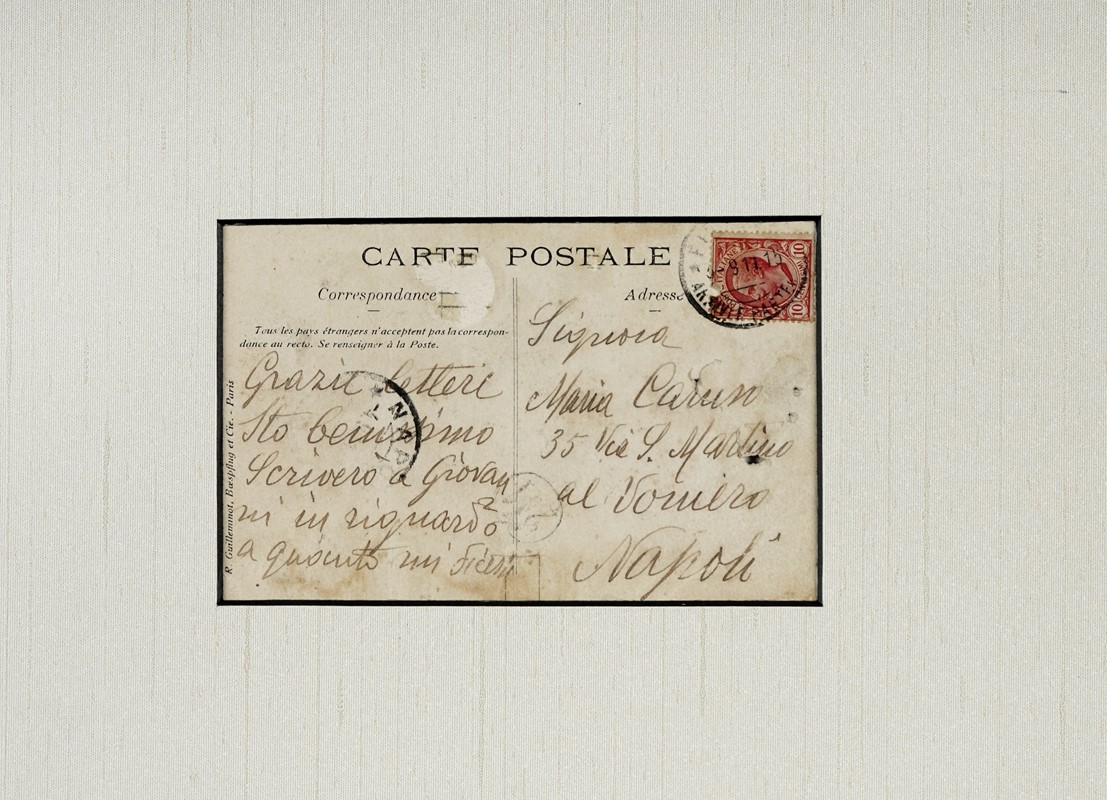 CARTE POSTALE
Correspondance
Adresse
Tous les pays étrangers n'acceptent pas la correspon-
dance au recto. Se renseigner à la Poste.
R. Guilleminot, Bœspflug et Cie. - Paris
Grazie lettere
Sto benissimo
Scrivero a Giovan
ni in riguardo
a quanto mi
Signora
Maria Caruso
35 Via S. Martino
al Vomero
Napoli
10
10
9 11 12
ARRIVI E PARTEN
NAPO